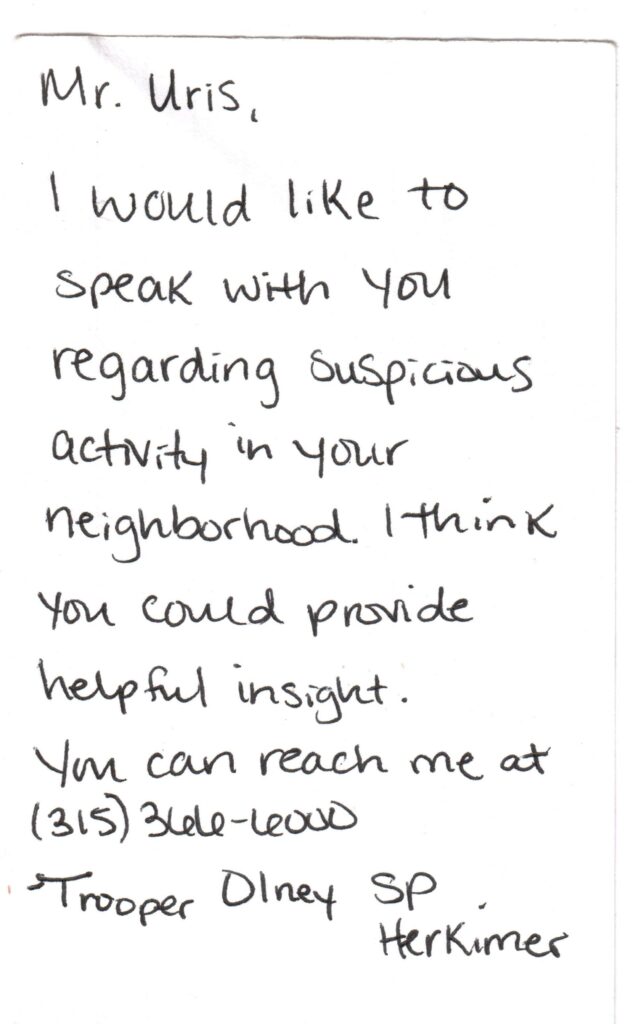 Mr. Uris,
I would like to
speak with you
regarding suspicious
activity in your
neighborhood. I think
you could provide
helpful insight.
You can reach me at
(315) 366-6000
Trooper Olney SP
Herkimer